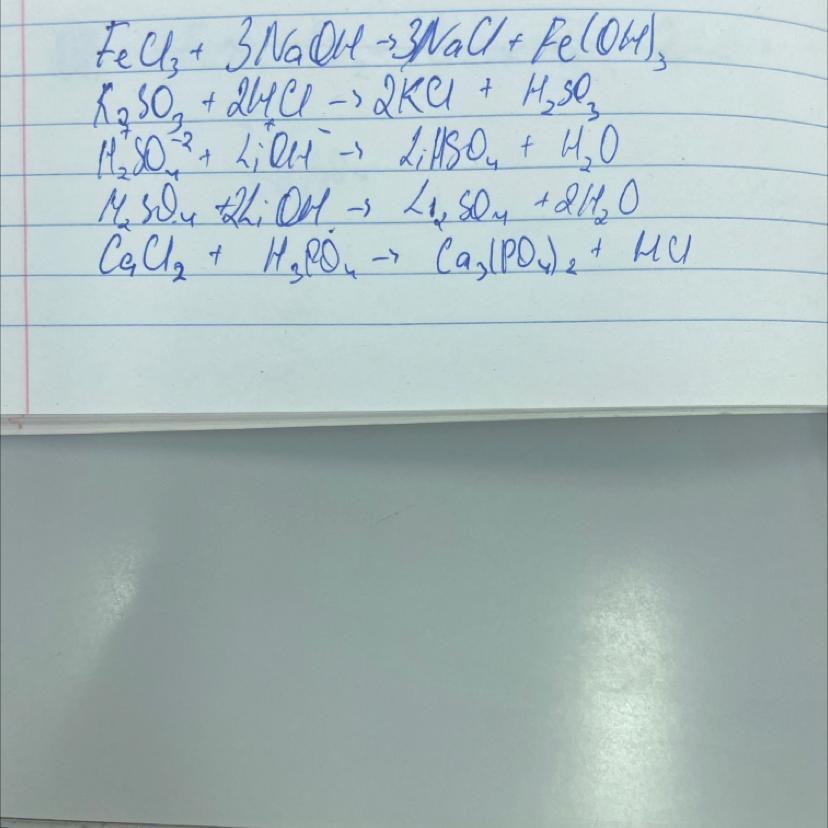 FeCl₃ + 3NaOH → 3NaCl + Fe(OH)₃
K₂SO₃ + 2HCl → 2KCl + H₂SO₃
H₂⁺SO₄⁻² + Li⁺OH⁻ → LiHSO₄ + H₂O
H₂SO₄ + 2LiOH → Li₂SO₄ + 2H₂O
CaCl₂ + H₃PO₄ → Ca₃(PO₄)₂ + HCl